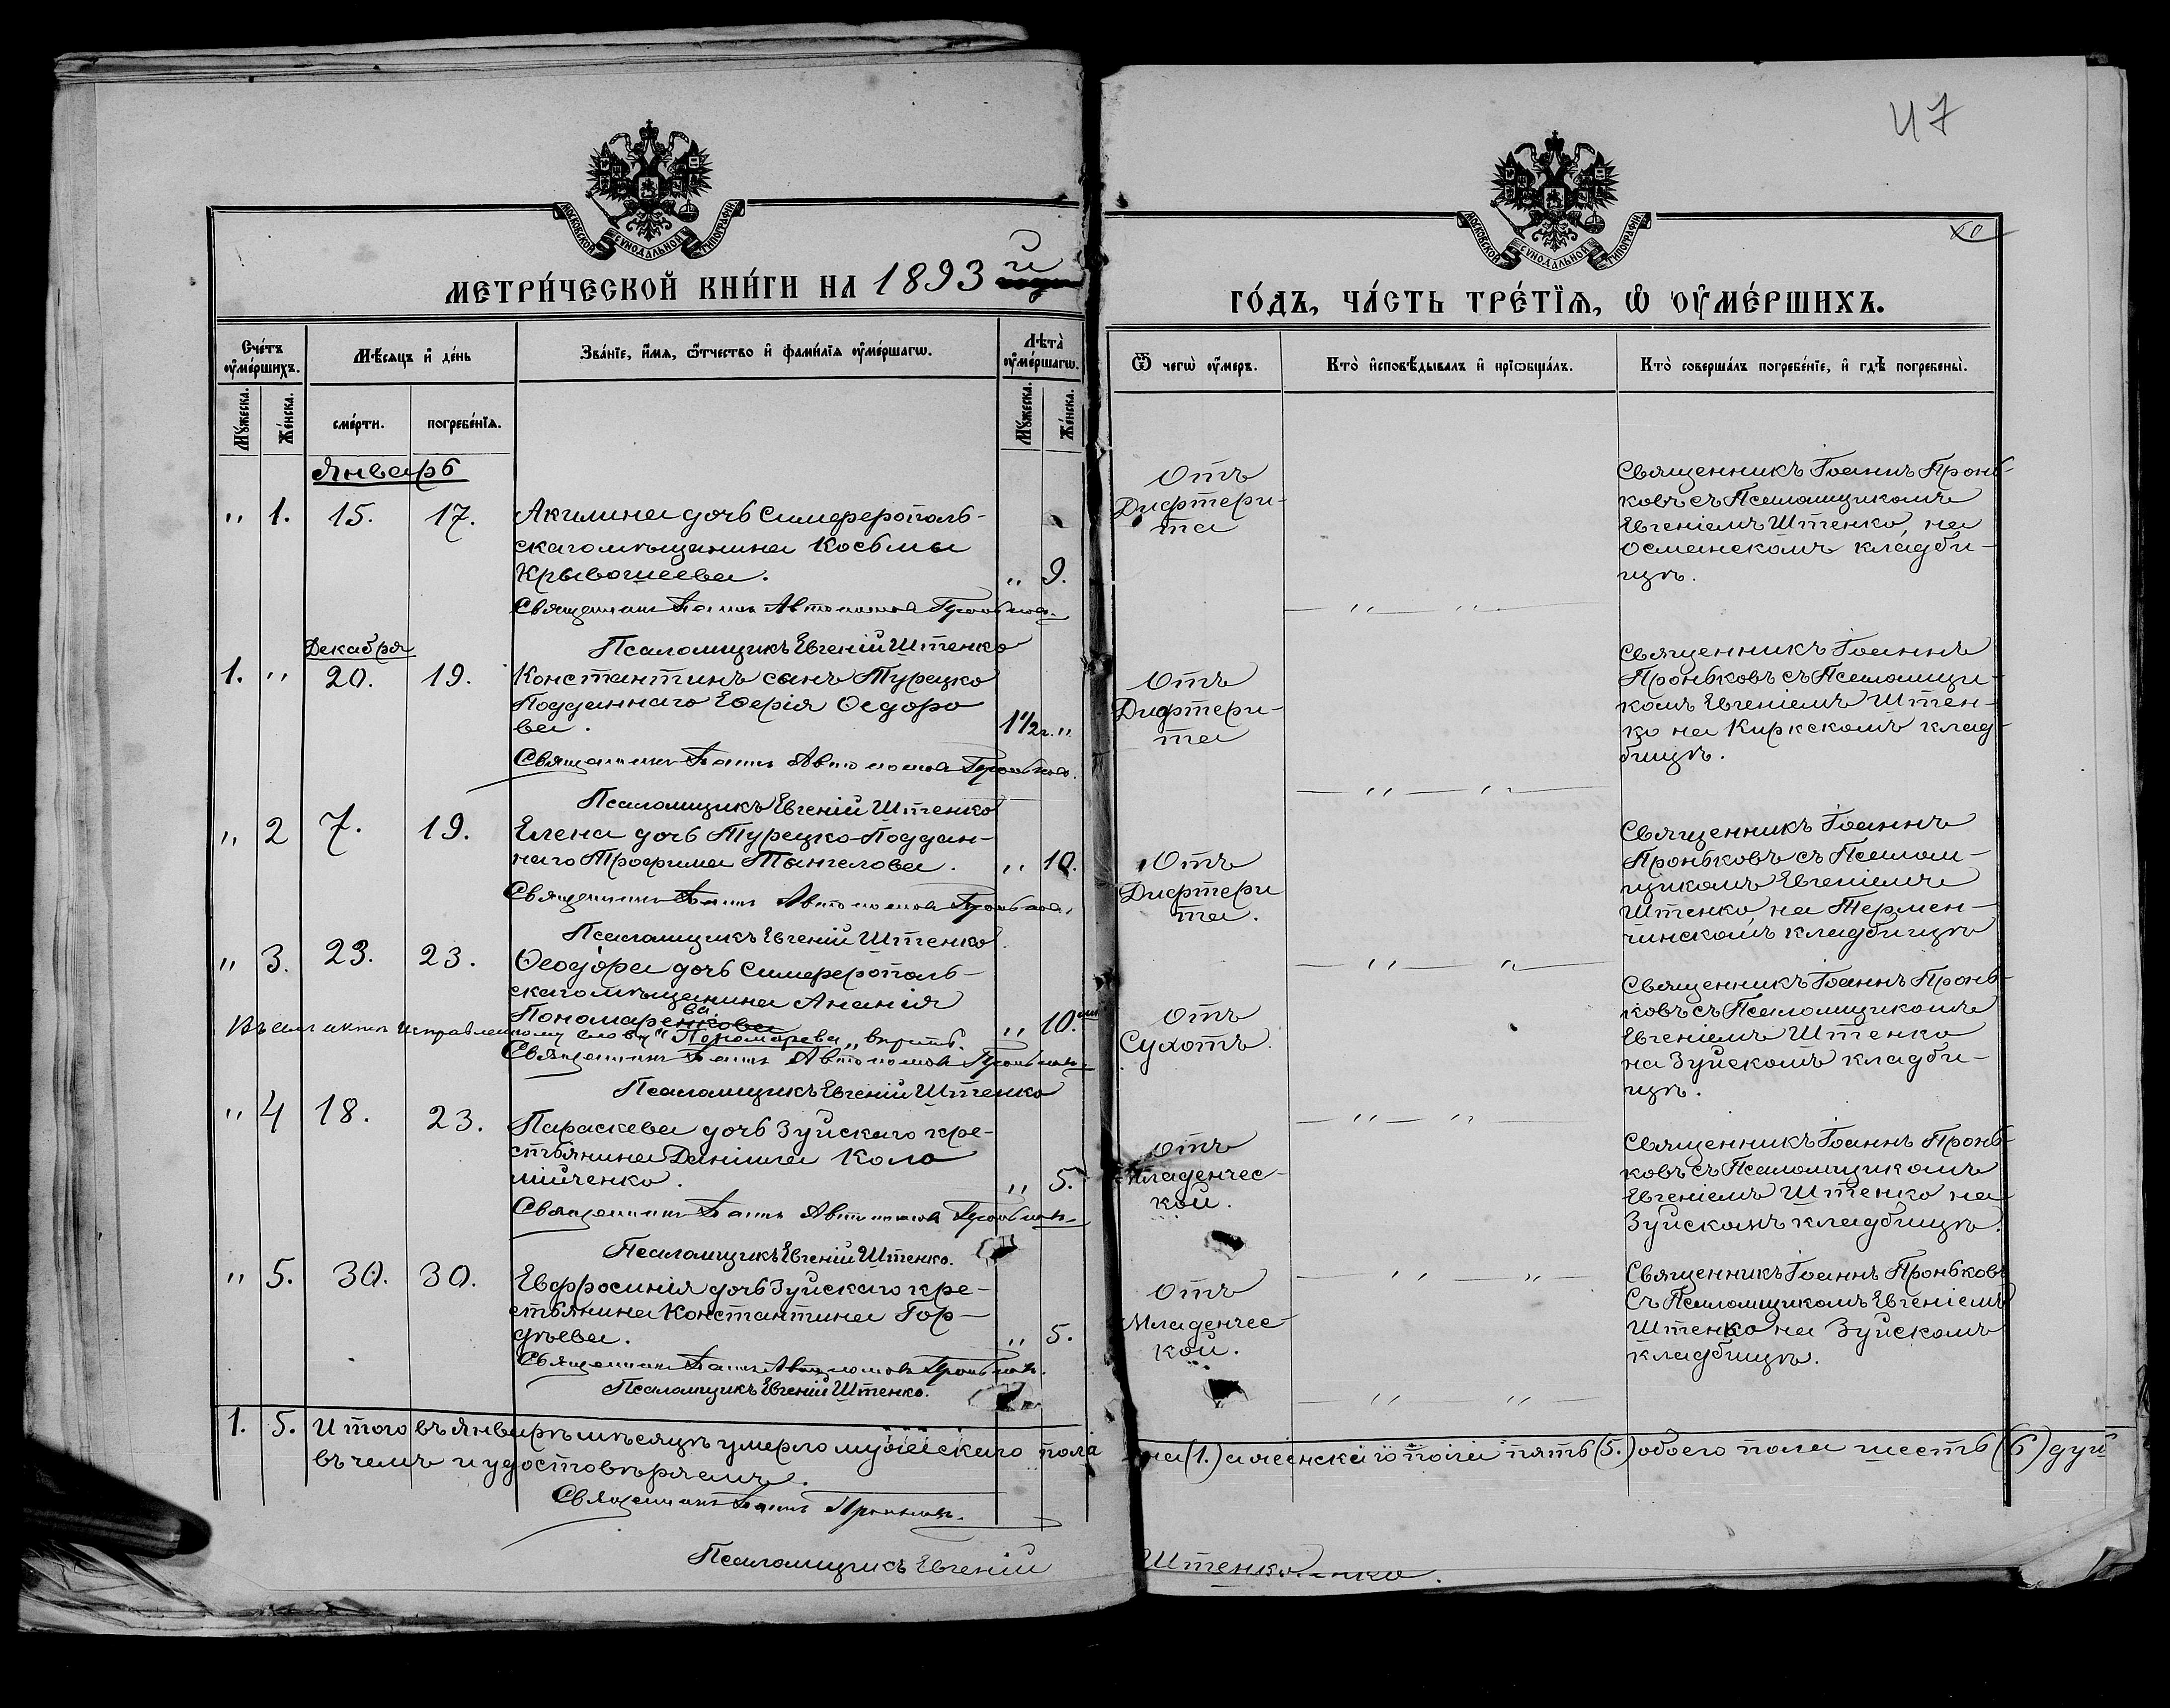 47
МОСКОВСКОЙ СѴНОДАЛЬНОЙ ТИПОГРАФІИ
МОСКОВСКОЙ СѴНОДАЛЬНОЙ ТИПОГРАФІИ
МЕТРИ́ЧЕСКОЙ КНИ́ГИ НА 1893 й
ГО́ДЪ, ЧА́СТЬ ТРЕ́ТЇѦ, Ѡ҆ ОУ҆МЕ́РШИХЪ.
Сче́тъ оу҆ме́ршихъ.
Мꙋ́жеска.
Же́нска.
Мѣ́сяцъ и҆ де́нь
сме́рти.
погребе́нїѧ.
Зва́нїе, и҆́мѧ, ѻ҆́тчество и҆ фами́лїѧ оу҆ме́ршагѡ.
Лѣ́та оу҆ме́ршагѡ.
Мꙋ́жеска.
Же́нска.
Ѿ чегѡ̀ оу҆́меръ.
Кто̀ и҆сповѣ́дывалъ и҆ прїѡбща́лъ.
Кто̀ соверша́лъ погребе́нїе, и҆ гдѣ̀ погребены̀.
Январь
„ 1. 15. 17. Акилина дочь Симферополь-
скаго мѣщанина Косьмы
Кривошеева. „ 9.
Священникъ Іоаннъ Автономовъ Проньковъ.
Псаломщикъ Евгеній Штенко
Отъ
Дифтери-
та
Священникъ Іоаннъ Пронь-
ковъ съ Псаломщикомъ
Евгеніемъ Штенко, на
Османскомъ кладби-
щѣ.
Декабря
1. „ 20. 19. Константинъ сынъ Турецко
Подданнаго Еѳерія Ѳедоро
ва. 1½ г. „
Священникъ Іоаннъ Автономовъ Проньковъ.
Псаломщикъ Евгеній Штенко
Отъ
Дифтери-
та
Священникъ Іоаннъ
Проньковъ съ Псаломщи-
комъ Евгеніемъ Штен-
ко на Киркскомъ клад-
бищѣ.
„ 2 7. 19. Елена дочь Турецко-Поддан-
наго Трофима Тангелова. „ 10.
Священникъ Іоаннъ Автономовъ Проньковъ.
Псаломщикъ Евгеній Штенко
Отъ
Дифтери
та.
Священникъ Іоаннъ
Проньковъ съ Псалом-
щикомъ Евгеніемъ
Штенко, на Термен-
чинскомъ кладбищѣ
„ 3. 23. 23. Ѳеодора дочь Симферополь-
скаго мѣщанина Ананія
Пономарева „ 10.
исправленному слову „Пономарева„ вѣрить.
Священникъ Іоаннъ Автономовъ Проньковъ.
Псаломщикъ Евгеній Штенко
Отъ
Сухотъ.
Священникъ Іоаннъ Пронь-
ковъ съ Псаломщикомъ
Евгеніемъ Штенко
на Зуйскомъ кладби-
щѣ.
„ 4 18. 23. Параскева дочь Зуйскаго кре-
стьянина Даніила Коло
мійченко. „ 5.
Священникъ Іоаннъ Автономовъ Проньковъ.
Псаломщикъ Евгеній Штенко.
Отъ
Младенчес-
кой.
Священникъ Іоаннъ Пронь-
ковъ съ Псаломщикомъ
Евгеніемъ Штенко на
Зуйскомъ кладбищѣ.
„ 5. 30. 30. Евфросинія дочь Зуйскаго кре-
стьянина Константина Гор-
дѣева. „ 5.
Священникъ Іоаннъ Автономовъ Проньковъ.
Псаломщикъ Евгеній Штенко.
Отъ
Младенчес-
кой.
Священникъ Іоаннъ Проньковъ
Съ Псаломщикомъ Евгеніемъ
Штенко на Зуйскомъ
кладбищѣ.
1. 5. Итого въ Январѣ мѣсяцѣ умерло мужескаго пола (1.) а женскаго пола пять (5.) обоего пола шесть (6) душ
въ чемъ и удостовѣряемъ.
Священникъ Іоаннъ Проньковъ.
Псаломщикъ Евгеній Штенко.